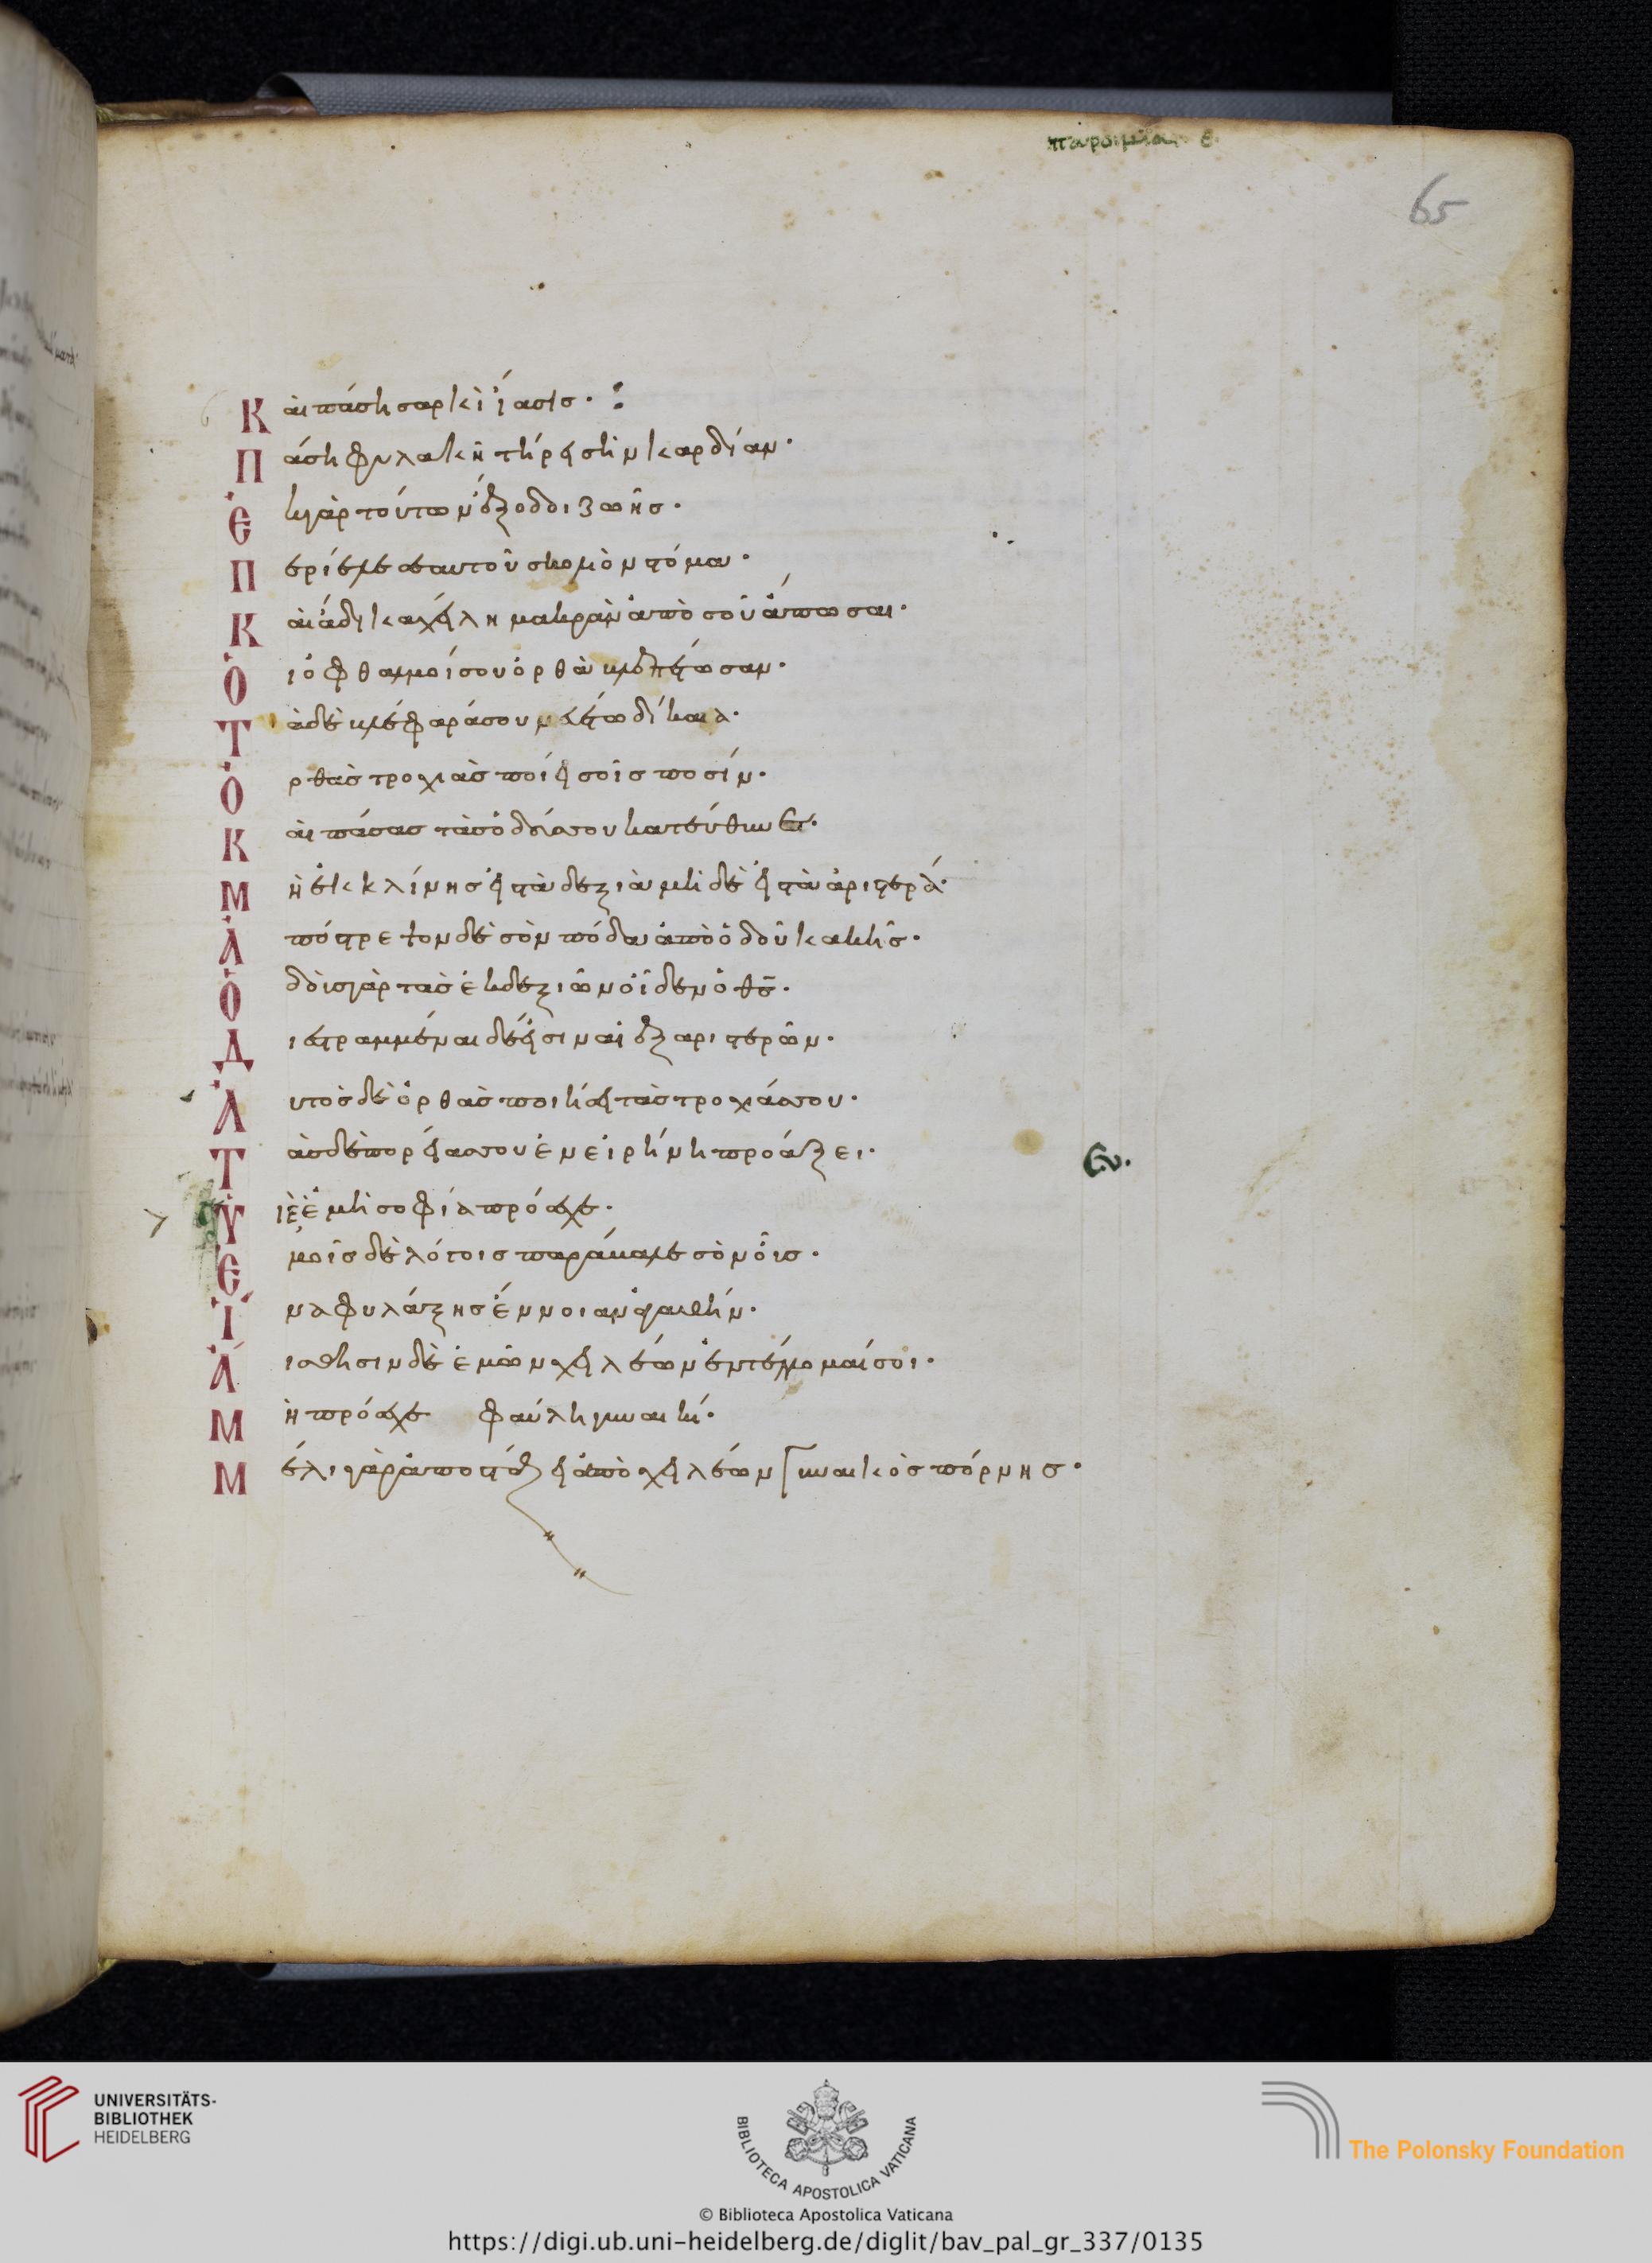 παροιμίαι ε.
65
Καὶ πάση σαρκὶ ἴασις· :
Πάση φυλακῆ τήρει σὴν καρδίαν·
Ἐκ γὰρ τούτων ἔξοδοι ζωῆς·
Περίελε σεαυτοῦ σκολιὸν στόμα·
Καὶ ἄδικα χείλη μακρὰν ἀπὸ σοῦ ἄπωσαι·
Ὁι ὀφθαλμοί σου ὀρθὰ βλεπέτωσαν·
Τὰ δὲ βλέφαρά σου νευέτω δίκαια·
Ὀρθὰς τροχιὰς ποίει σοῖς ποσίν·
Καὶ πάσας τὰς ὁδούς σου κατεύθυνε·
Μὴ ἐκκλίνης εἰς τὰ δεξιὰ μὴ δὲ εἰς τὰ ἀριστερά·
Ἀπόστρεψον δὲ σὸν πόδα ἀπὸ ὁδοῦ κακῆς·
Ὁδοὺς γὰρ τὰς ἐκ δεξιῶν οἶδεν ὁ θς·
Διεστραμμέναι δέ εἰσιν αἱ ἐξ αριστερῶν·
Ἀυτὸς δὲ ὀρθὰς ποιήσει τὰς τροχιάς σου·
Τὰς δὲ πορείας σου ἐν εἰρήνη προάξει·
Ὑιὲ ἐμῆ σοφία πρόσεχε·
Ἐμοῖς δὲ λόγοις παράβαλε σὸν οὖς·
Ἵνα φυλάξης ἔννοιαν ἀγαθήν·
Ἄισθησιν δὲ ἐμῶν χειλέων ἐντέλλομαί σοι·
Μὴ πρόσεχε φαύλη γυναικί·
Μέλι γὰρ ἀποστάζει ἀπὸ χειλέων γυναικὸς πόρνης·
UNIVERSITÄTS-
BIBLIOTHEK
HEIDELBERG
BIBLIOTECA APOSTOLICA VATICANA
The Polonsky Foundation
© Biblioteca Apostolica Vaticana
https://digi.ub.uni-heidelberg.de/diglit/bav_pal_gr_337/0135